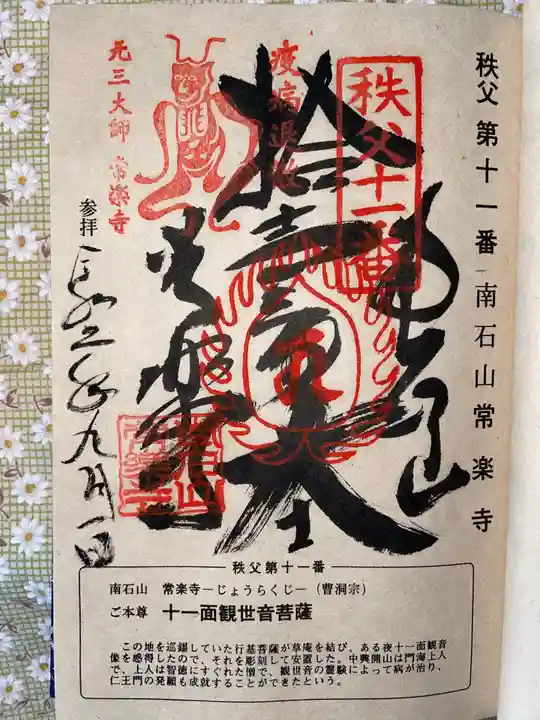 秩父第十一番 南石山常楽寺
秩父十一番
疫病退散
元三大師 常楽寺
拾壹面大士
常楽寺
参拝
令和三年九月一日
秩父第十一番
南石山 常楽寺－じょうらくじ－(曹洞宗)
ご本尊 十一面観世音菩薩
この地を巡錫していた行基菩薩が草庵を結び、ある夜十一面観音
像を感得したので、それを彫刻して安置した。中興開山は門海上人
で、上人は智徳にすぐれた僧で、観世音の霊験によって病が治り、
仁王門の発願も成就することができたという。